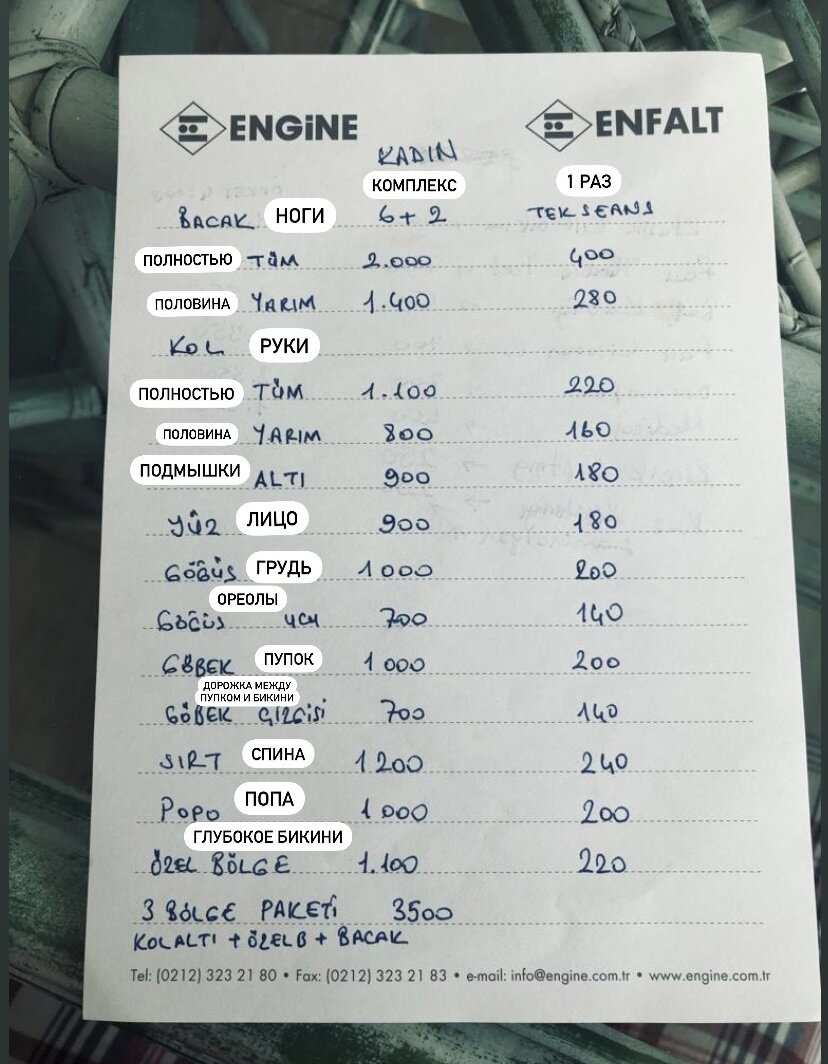 ENGiNE ENFALT
KADIN
КОМПЛЕКС 1 РАЗ
BACAK НОГИ 6+2 TEK SEANS
ПОЛНОСТЬЮ TÜM 2.000 400
ПОЛОВИНА YARIM 1.400 280
KOL РУКИ
ПОЛНОСТЬЮ TÜM 1.100 220
ПОЛОВИНА YARIM 800 160
ПОДМЫШКИ ALTI 900 180
YÜZ ЛИЦО 900 180
GÖĞÜS ГРУДЬ 1000 200
ОРЕОЛЫ
GÖĞÜS UCU 700 140
GÖBEK ПУПОК 1000 200
ДОРОЖКА МЕЖДУ
ПУПКОМ И БИКИНИ
GÖBEK ÇIZGİSİ 700 140
SIRT СПИНА 1200 240
POPO ПОПА 1000 200
ГЛУБОКОЕ БИКИНИ
ÖZEL BÖLGE 1.100 220
3 BÖLGE PAKETİ 3500
KOLALTI + ÖZELB + BACAK
Tel: (0212) 323 21 80 • Fax: (0212) 323 21 83 • e-mail: info@engine.com.tr • www.engine.com.tr